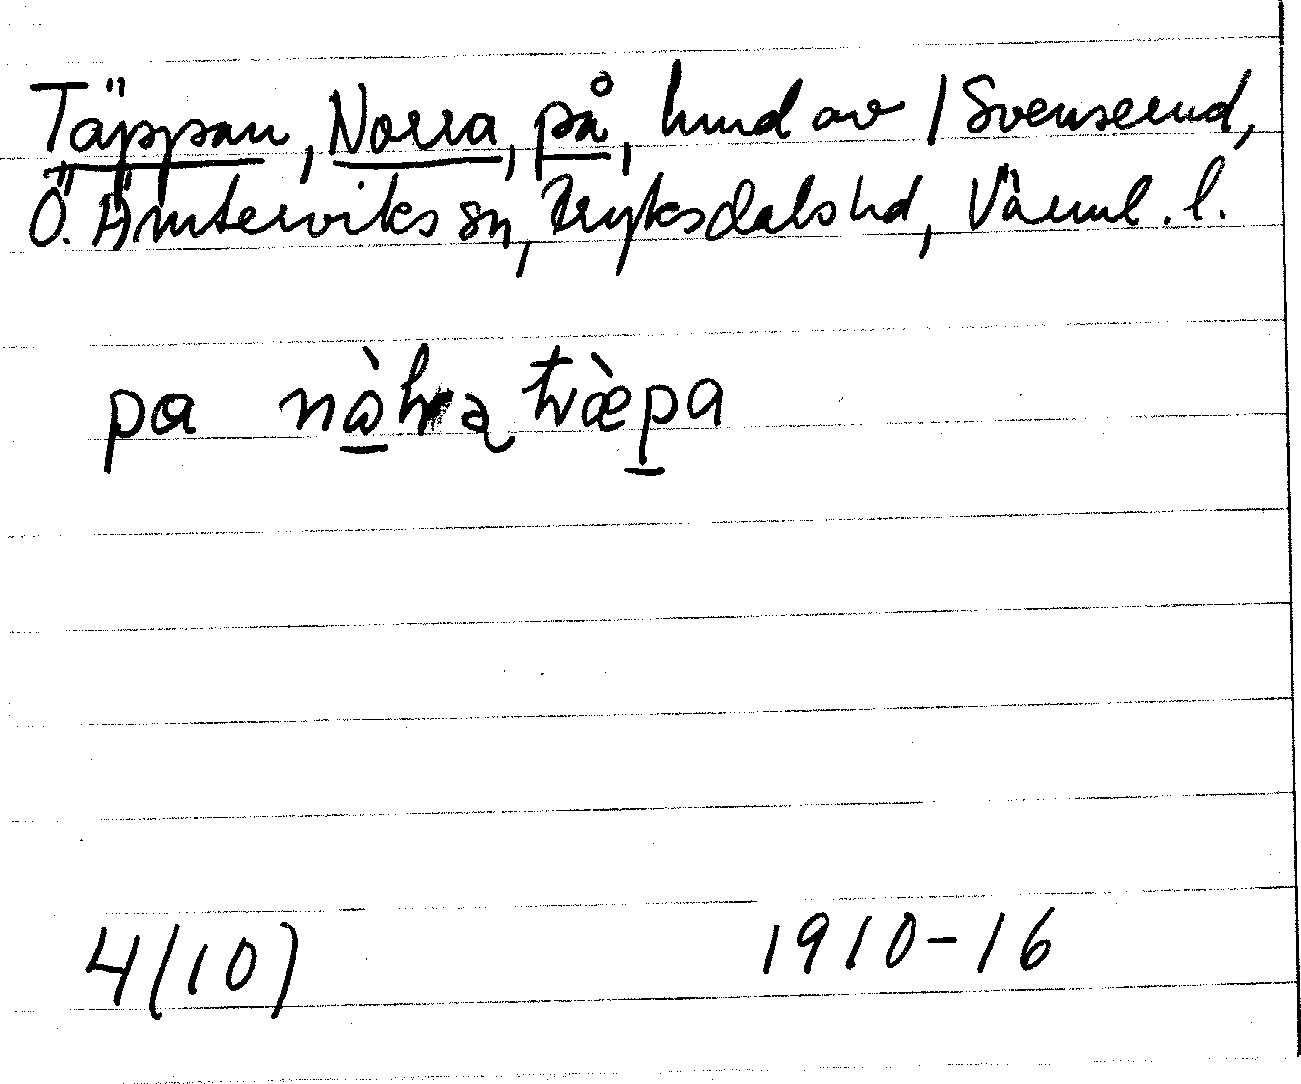 Täppan, Norra, på, hmd av 1 Svenserud,
Ö. Ämterviks sn, Fryksdals hd, Värml. l.
pa
4(10) 1910-16